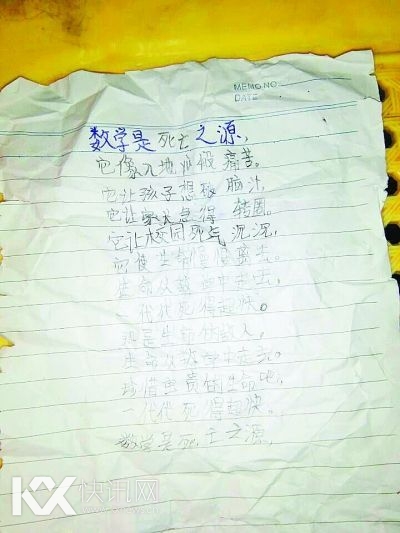 MEMO NO.
DATE
数学是死亡之源，
它像入地狱般痛苦。
它让孩子想破脑汁，
它让家长急得转圈。
它让校园死气沉沉，
它使生命慢慢离去。
生命从数学中走去，
一代代死得超快。
是生命敌人，
生命从数学中走去。
珍惜宝贵的生命吧，
一代代死得超快。
数学是死亡之源，
KX快讯网